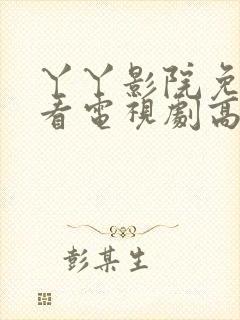 丫丫影院免
看電視劇高
彭某生